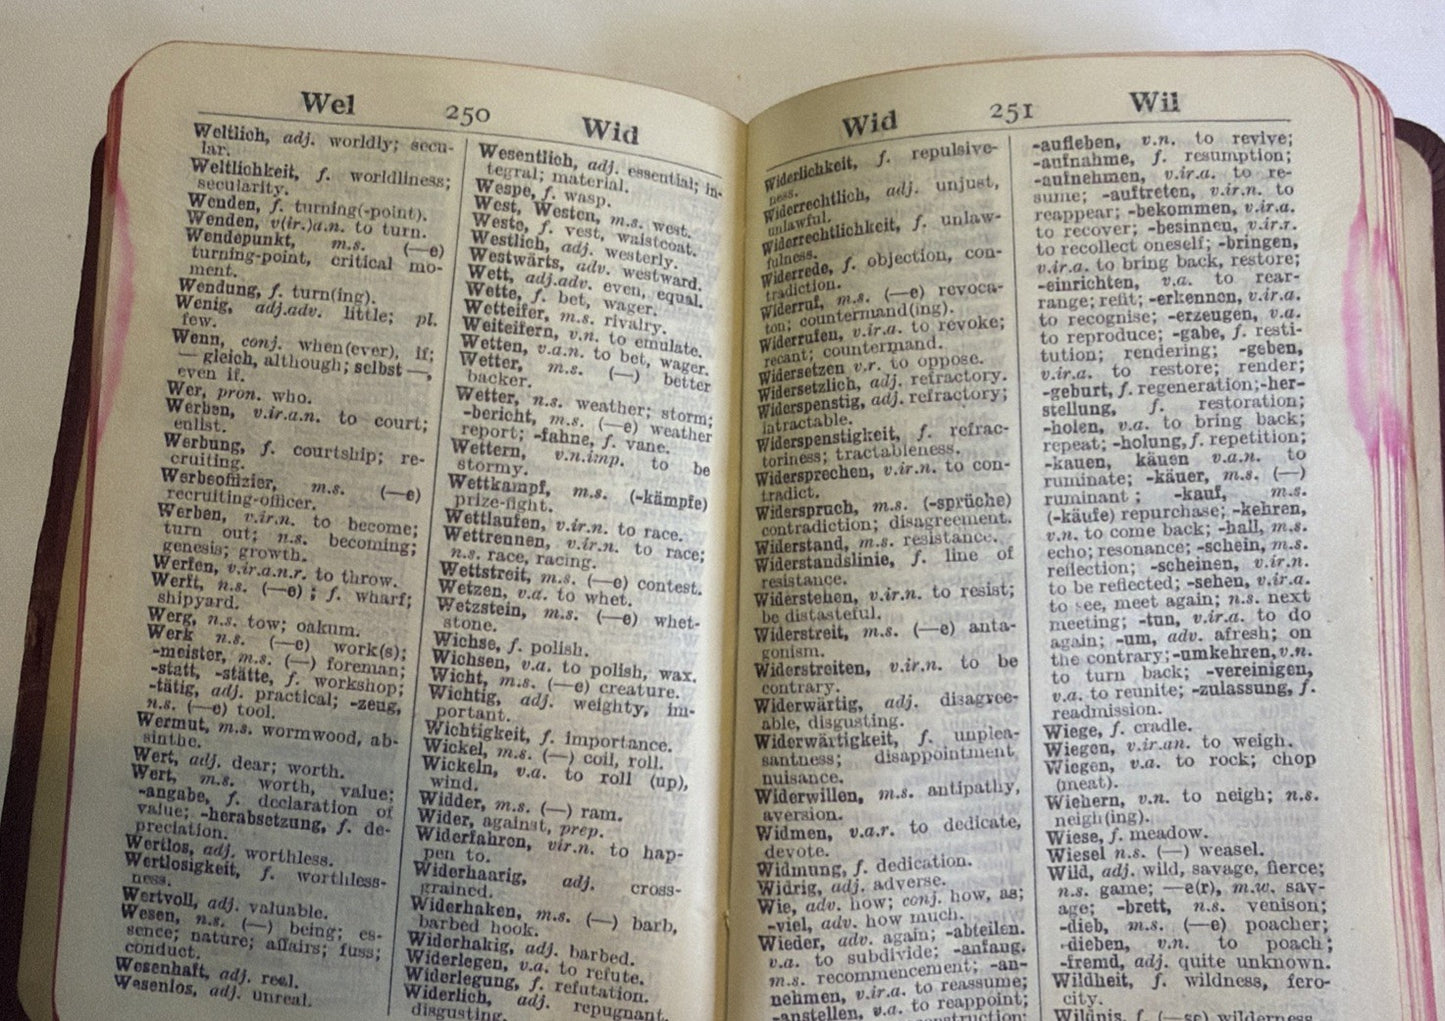 Wel 250 Wid
Weltlich, adj. worldly; secu-
lar.
Weltlichkeit, f. worldliness;
secularity.
Wenden, f. turning(-point).
Wenden, v(ir.)a.n. to turn.
Wendepunkt, m.s. (—e)
turning-point, critical mo-
ment.
Wendung, f. turn(ing).
Wenig, adj.adv. little; pl.
few.
Wenn, conj. when(ever), if;
— gleich, although; selbst —,
even if.
Wer, pron. who.
Werben, v.ir.a.n. to court;
enlist.
Werbung, f. courtship; re-
cruiting.
Werbeoffizier, m.s. (—e)
recruiting-officer.
Werben, v.ir.n. to become;
turn out; n.s. becoming;
genesis; growth.
Werfen, v.ir.a.n.r. to throw.
Werft, n.s. (—e); f. wharf;
shipyard.
Werg, n.s. tow; oakum.
Werk n.s. (—e) work(s);
-meister, m.s. (—) foreman;
-statt, -stätte, f. workshop;
-tätig, adj. practical; -zeug,
n.s. (—e) tool.
Wermut, m.s. wormwood, ab-
sinthe.
Wert, adj. dear; worth.
Wert, m.s. worth, value;
-angabe, f. declaration of
value; -herabsetzung, f. de-
preciation.
Wertlos, adj. worthless.
Wertlosigkeit, f. worthless-
ness.
Wertvoll, adj. valuable.
Wesen, n.s. (—) being; es-
sence; nature; affairs; fuss;
conduct.
Wesenhaft, adj. real.
Wesenlos, adj. unreal.
Wesentlich, adj. essential; in-
tegral; material.
Wespe, f. wasp.
West, Westen, m.s. west.
Weste, f. vest, waistcoat.
Westlich, adj. westerly.
Westwärts, adv. westward.
Wett, adj.adv. even, equal.
Wette, f. bet, wager.
Wetteifer, m.s. rivalry.
Weiteifern, v.n. to emulate.
Wetten, v.a.n. to bet, wager.
Wetter, m.s. (—) better
backer.
Wetter, n.s. weather; storm;
-bericht, m.s. (—e) weather
report; -fahne, f. vane.
Wettern, v.n.imp. to be
stormy.
Wettkampf, m.s. (-kämpfe)
prize-fight.
Wettlaufen, v.ir.n. to race.
Wettrennen, v.ir.n. to race;
n.s. race, racing.
Wettstreit, m.s. (—e) contest.
Wetzen, v.a. to whet.
Wetzstein, m.s. (—e) whet-
stone.
Wichse, f. polish.
Wichsen, v.a. to polish, wax.
Wicht, m.s. (—e) creature.
Wichtig, adj. weighty, im-
portant.
Wichtigkeit, f. importance.
Wickel, m.s. (—) coil, roll.
Wickeln, v.a. to roll (up),
wind.
Widder, m.s. (—) ram.
Wider, against, prep.
Widerfahren, vir.n. to hap-
pen to.
Widerhaarig, adj. cross-
grained.
Widerhaken, m.s. (—) barb,
barbed hook.
Widerhakig, adj. barbed.
Widerlegen, v.a. to refute.
Widerlegung, f. refutation.
Widerlich, adj. repugnant,
disgusting.
Wid 251 Wil
Widerlichkeit, f. repulsive-
ness.
Widerrechtlich, adj. unjust,
unlawful.
Widerrechtlichkeit, f. unlaw-
fulness.
Widerrede, f. objection, con-
tradiction.
Widerruf, m.s. (—e) revoca-
ton; countermand(ing).
Widerrufen, v.ir.a. to revoke;
recant; countermand.
Widersetzen v.r. to oppose.
Widersetzlich, adj. refractory.
Widerspenstig, adj. refractory;
intractable.
Widerspenstigkeit, f. refrac-
toriness; tractableness.
Widersprechen, v.ir.n. to con-
tradict.
Widerspruch, m.s. (-sprüche)
contradiction; disagreement.
Widerstand, m.s. resistance.
Widerstandslinie, f. line of
resistance.
Widerstehen, v.ir.n. to resist;
be distasteful.
Widerstreit, m.s. (—e) anta-
gonism.
Widerstreiten, v.ir.n. to be
contrary.
Widerwärtig, adj. disagree-
able, disgusting.
Widerwärtigkeit, f. unplea-
santness; disappointment,
nuisance.
Widerwillen, m.s. antipathy,
aversion.
Widmen, v.a.r. to dedicate,
devote.
Widmung, f. dedication.
Widrig, adj. adverse.
Wie, adv. how; conj. how, as;
-viel, adv. how much.
Wieder, adv. again; -abteilen.
v.a. to subdivide; -anfang.
m.s. recommencement; -an-
nehmen, v.ir.a. to reassume;
-anstellen, v.a. to reappoint;
-aufleben, v.n. to revive;
-aufnahme, f. resumption;
-aufnehmen, v.ir.a. to re-
sume; -auftreten, v.ir.n. to
reappear; -bekommen, v.ir.a.
to recover; -besinnen, v.ir.r.
to recollect oneself; -bringen,
v.ir.a. to bring back, restore;
-einrichten, v.a. to rear-
range; refit; -erkennen, v.ir.a.
to recognise; -erzeugen, v.a.
to reproduce; -gabe, f. resti-
tution; rendering; -geben,
v.ir.a. to restore; render;
-geburt, f. regeneration; -her-
stellung, f. restoration;
-holen, v.a. to bring back;
repeat; -holung, f. repetition;
-kauen, käuen v.a.n. to
ruminate; -käuer, m.s. (—)
ruminant; -kauf, m.s.
(-käufe) repurchase; -kehren,
v.n. to come back; -hall, m.s.
echo; resonance; -schein, m.s.
reflection; -scheinen, v.ir.n.
to be reflected; -sehen, v.ir.a.
to see, meet again; n.s. next
meeting; -tun, v.ir.a. to do
again; -um, adv. afresh; on
the contrary; -umkehren, v.n.
to turn back; -vereinigen,
v.a. to reunite; -zulassung, f.
readmission.
Wiege, f. cradle.
Wiegen, v.ir.an. to weigh.
Wiegen, v.a. to rock; chop
(meat).
Wiehern, v.n. to neigh; n.s.
neigh(ing).
Wiese, f. meadow.
Wiesel n.s. (—) weasel.
Wild, adj. wild, savage, fierce;
n.s. game; —e(r), m.w. sav-
age; -brett, n.s. venison;
-dieb, m.s. (—e) poacher;
-dieben, v.n. to poach;
-fremd, adj. quite unknown.
Wildheit, f. wildness, fero-
city.
Wildnis, f. (—se) wilderness